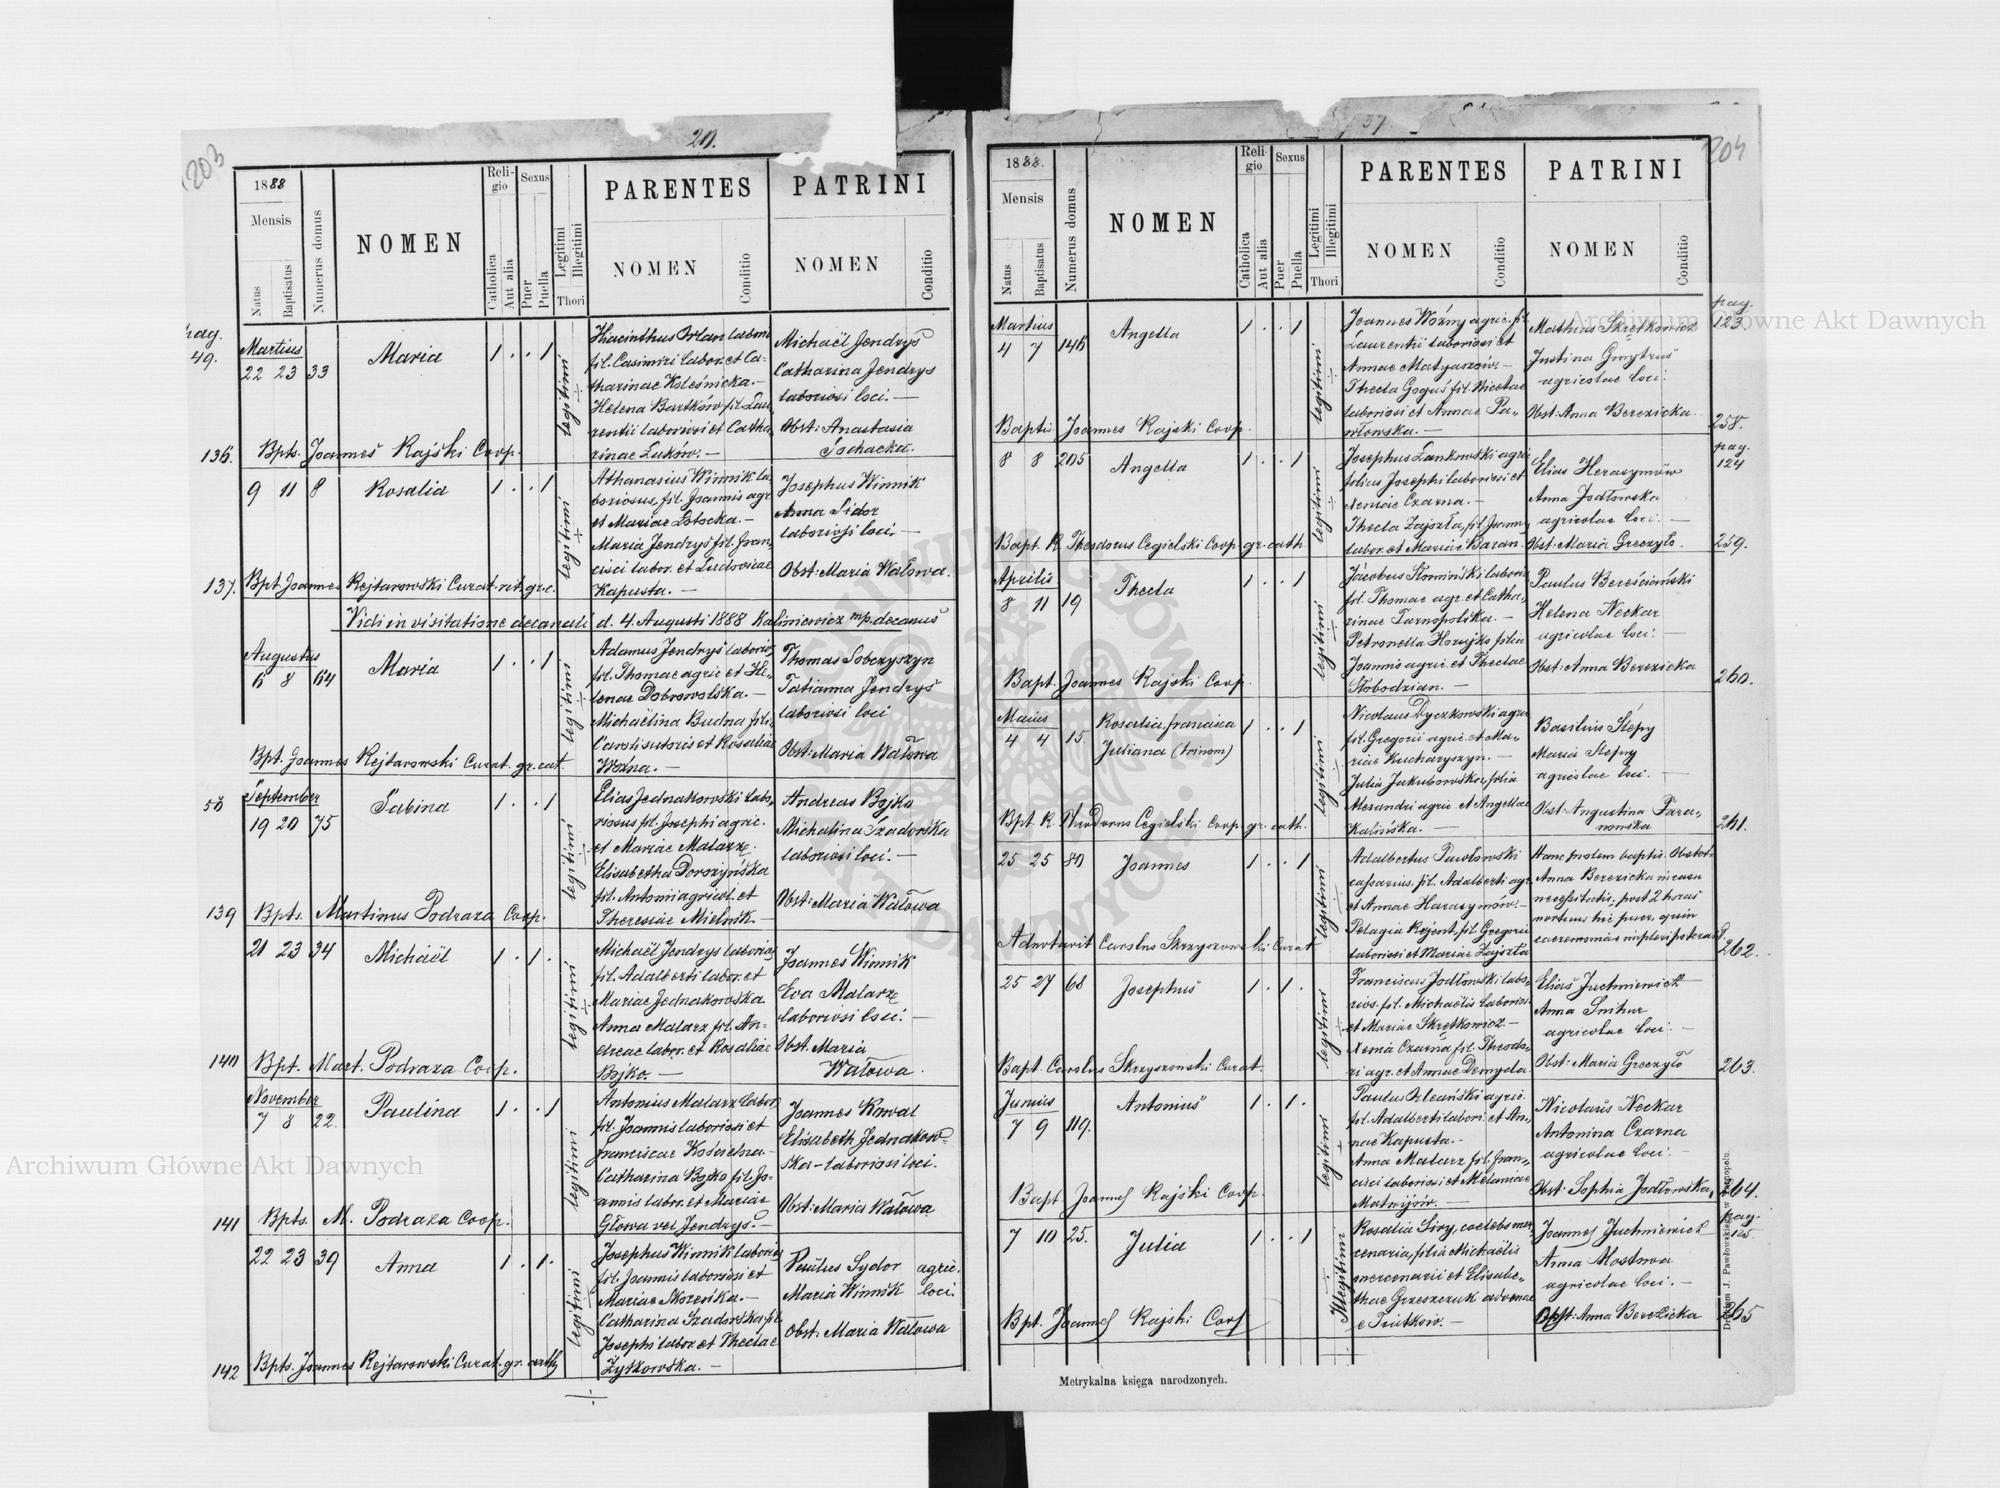 203
20.
1888
Mensis
Natus
Baptisatus
Numerus domus
NOMEN
Reli-
gio
Catholica
Aut alia
Sexus
Puer
Puella
Legitimi
Illegitimi
Thori
PARENTES
NOMEN
Conditio
PATRINI
NOMEN
Conditio
pag.
49.
Martius
22 23 33 Maria 1 . . 1
legitimi
Hiacinthus Orlan labori
fil. Casimiri labor. et Ca-
tharinae Koleśnicka. —
Helena Bartków fil. Lau
rentii laboriosi et Catha,
rinae Luków. —
Michaël Jendryś
Catharina Jendrys
laboriosi loci. —
Obst: Anastasia
Sochacka.
136. Bpts. Joannes Rajski Coop.
9 11 8 Rosalia 1 . . 1
legitimi
Athanasius Winnik la,
boriosus, fil. Joannis agr
et Mariae Łotocka. —
Maria Jendryś fil. Fran,
cisci labor. et Ludovicae
Kapusta. —
Josephus Winnik
Anna Sidor
laboriosi loci. —
Obst: Maria Wałowa.
137. Bpt. Joannes Rejtarowski Curat. rit. grc.
Vidi in visitatione decanali d. 4. Augusti 1888 Kaliniewicz mp. decanus
Augustus
6 8 64 Maria 1 . . 1
legitimi
Adamus Jendryś laborios
fil. Thomae agric et He,
lenae Dobrowolska. —
Michaëlina Budna, fili,
Caroli sutoris et Rosaliae
Woźna. —
Thomas Sobczyszyn
Tatianna Jendryś
laboriosi loci
Obst: Maria Wałowa
Bpt. Joannes Rejtarowski Curat. gr. cat.
50
September
19 20 75 Sabina 1 . . 1
legitimi
Elias Jednakowski labo,
riosus fil. Josephi agric.
et Mariae Malarz.
Elisabetha Doroszyńska
fil. Antonii agricol. et
Theresiae Mielnik. —
Andreas Bojko
Michalina Szadorska
laboriosi loci. —
Obst: Maria Wałowa
139 Bpts. Martinus Podraza Coop.
21 23 34 Michaël 1 . 1 .
legitimi
Michaël Jendrys laborios
fil. Adalberti labor. et
Mariae Jednakowska
Anna Malarz fil. An-
dreae labor. et Rosaliae
Bojko. —
Joannes Winnik
Eva Malarz
laboriosi loci. —
Obst. Maria
Wałowa.
140 Bpt. Mart. Podraza Coop.
November
7 8 22. Paulina 1 . . 1
legitimi
Antonius Malarz labor,
fil. Joannis laboriosi et
Franciscae Kościelna. —
Catharina Bojko fil. Jo-
annis labor. et Mariae
Głowa vel Jendryś. —
Joannes Kowal
Elisabeth Jednakow-
ska - laboriosi loci.
Obst: Maria Wałowa
141 Bpts. M. Podraza Coop.
22 23 39 Anna 1 . 1 .
legitimi
Josephus Winnik laborios
fil. Joannis laboriosi et
Mariae
Catharina Szadorska, fil,
Josephi labor. et Theclae
Żytkowska. —
Paulus Sydor agric.
Maria Winnik loci.
Obst: Maria Wałowa
142 Bpts. Joannes Rejtarowski Curat. gr. cath
37
204
1888.
Mensis
Natus
Baptisatus
Numerus domus
NOMEN
Reli-
gio
Catholica
Aut alia
Sexus
Puer
Puella
Legitimi
Illegitimi
Thori
PARENTES
NOMEN
Conditio
PATRINI
NOMEN
Conditio
Martius
4 7 146 Angella 1 . . 1
legitimi
Joannes Woźny agric. fil
Laurentii laboriosi et
Annae Matyaszów. —
Thecla Goguś fil. Nicetae
laboriosi et Annae Pa-
włowska. —
Mathias Skrętkowicz
Justina Gmytruś
agricolae loci.
Obst: Anna Berezicka.
pag.
123.
Baptis. Joannes Rajski Coop.
258.
8 8 205 Angella 1 . . 1
legitimi
Josephus Lankowski agric
filius Josephi laboriosi et
Xeniae Czarna. —
Thecla Zajszła, fil. Joann,
labor. et Mariae Baran.
Elias Herasymów
Anna Jodłowska
agricolae loci. —
Obst: Maria Greczyło.
pag.
124
Bapt. R. Theodorus Cegielski Coop. gr. cath
259.
Aprilis
8 11 19 Thecla 1 . . 1
legitimi
Jacobus Słomiński laborio
fil. Thomae agr. et Catha,
rinae Tarnopolska. —
Petronella Hornijko filia
Joannis agric. et Theclae
Słobodzian. —
Paulus Bereściański
Helena Neckar
agricolae loci. —
Obst: Anna Berezicka
Bapt. Joannes Rajski Coop.
260.
Maius
4 4 15. Rosalia, Francisca
Juliana (trinom) 1 . . 1
legitimi
Nicolaus Dyczkowski agric
fil. Gregorii agric. et Ma-
riae Kucharyszyn. —
Julia Jakubowska, filia
Alexandri agric. et Angellae
Kalińska. —
Basilius Slepy
Maria Slepny
agricolae loci. —
Obst: Augustina Tara,
nowska
Bpt. R. Theodorus Cegielski Coop. gr. cath.
261.
25 25 80 Joannes 1 . . 1
legitimi
Adalbertus Pawłowski
cassarius, fil. Adalberti agr
et Annae Harasymów. —
Pelagia Rejent, fil. Gregorii
laboriosi et Mariae Zajszła
Hanc prolem baptis. Obstet.
Anna Berezicka in casu
necessitatis, post 2 horas
mortuus hic puer, quin
caeremoniae
Adnotavit Carolus Skrzyszowski Curat
262.
25 27 68 Josephus 1 . 1 .
legitimi
Franciscus Jodłowski labo,
rios. fil. Michaëlis laborios.
et Mariae Skrętkowicz. —
Xenia Czarna fil. Theodo,
ri agr. et Annae Demyda.
Elias Juchniewicz
Anna Smhur
agricolae loci. —
Obst: Maria Greczyło
Bapt. Carolus Skrzyszowski Curat.
263.
Junius
7 9 119. Antonius 1 . 1 .
legitimi
Paulus Oleański agric.
fil. Adalberti labori. et An,
nae Kapusta. —
Anna Malarz fil. Fran,
cisci laboriosi et Melaniae
Matwijów. —
Nicolaus Neckar
Antonina Czarna
agricolae loci. —
Obst: Sophia Jodłowska,
Bapt. Joannes Rajski Coop.
264.
7 10 25. Julia 1 . . 1
Illegitimi
Rosalia Siwy, coelebs mer,
cenaria, filia Michaëlis
mercenarii et Elisabe,
thae Grzeszczuk advenae
Joannes Juchniewicz
Anna Mostowa
agricolae loci. —
Obst: Anna Berezicka
pag.
125
Bpt. Joannes Rajski Coop
265
Metrykalna księga narodzonych.
Drukiem J. Pawłowskiego w Tarnopolu.
Archiwum Główne Akt Dawnych
Archiwum Główne Akt Dawnych
ARCHIWUM GŁÓWNE AKT DAWNYCH